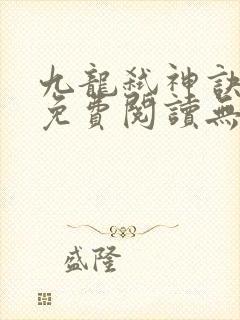 九龍弒神訣
免費閱讀無
盛隆